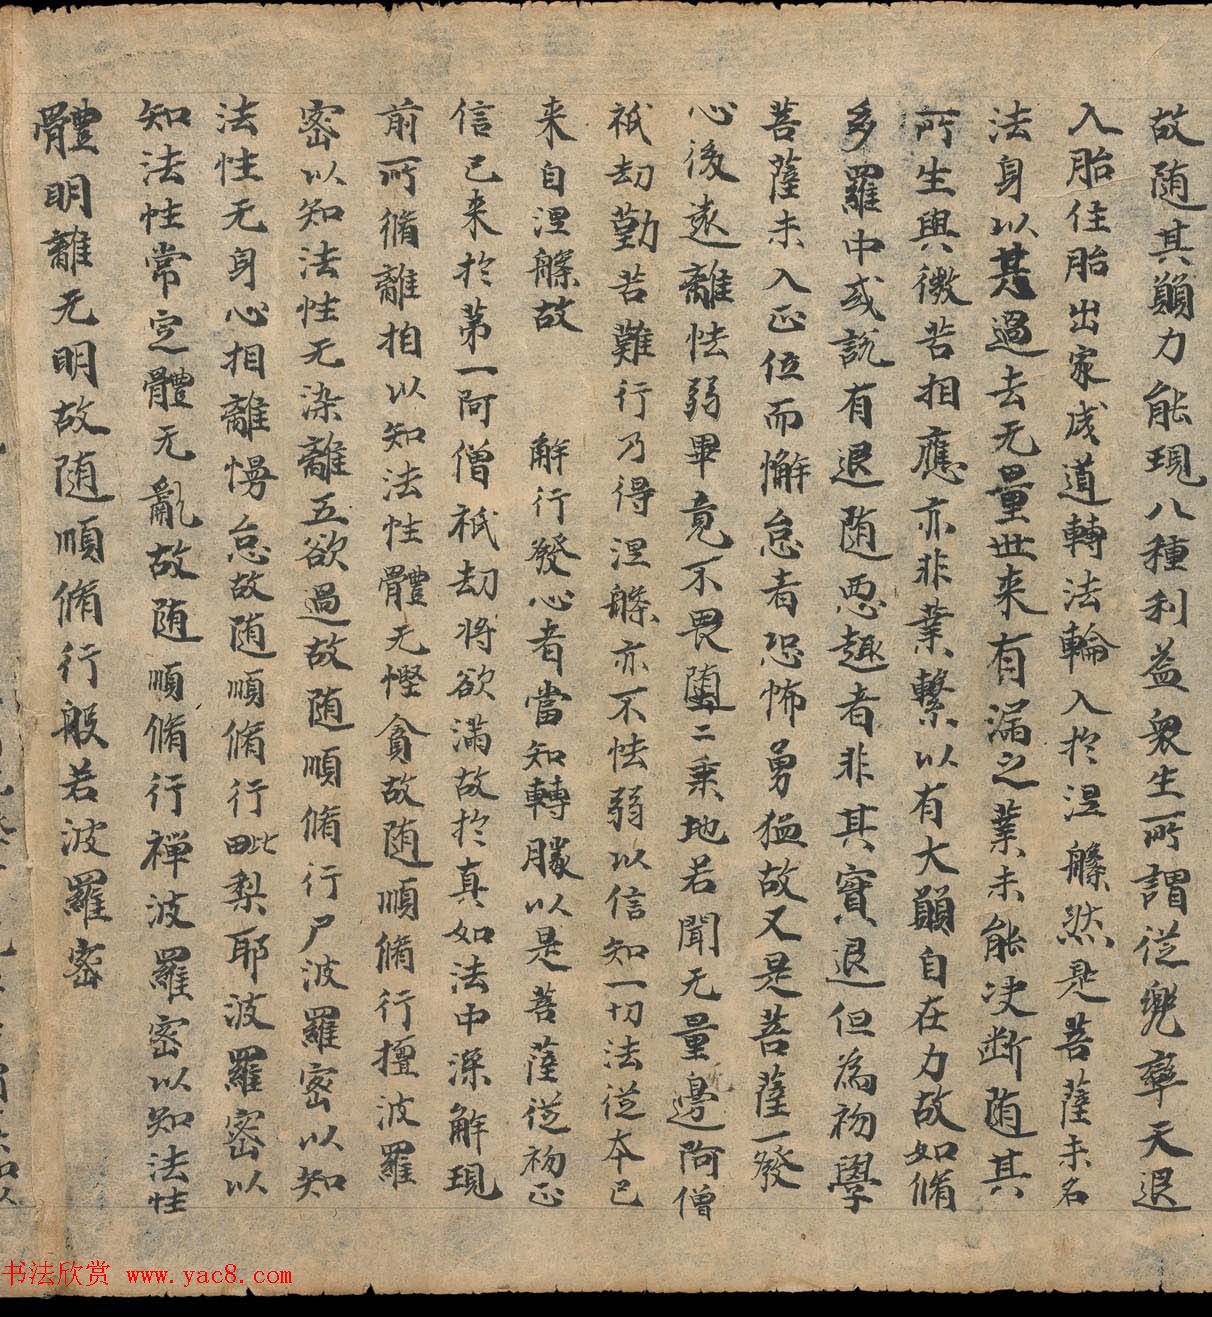 故随其願力能現八種利益衆生所謂従兜率天退
入胎住胎出家成道轉法輪入於涅槃然是菩薩未名
法身以其過去无量世来有漏之業未能决断随其
所生與微苦相應亦非業繫以有大願自在力故如脩
多羅中或説有退随悪趣者非其實退但為初學
菩薩未入正位而懈怠者恐怖勇猛故又是菩薩一發
心後遠離怯弱畢竟不畏堕二乗地若聞无量邊阿僧
祇劫勤苦難行乃得涅槃亦不怯弱以信知一切法従本已
来自涅槃故　　解行發心者當知轉勝以是菩薩従初正
信已来於第一阿僧祇劫将欲滿故於真如法中深解現
前所脩離相以知法性體无慳貪故随順脩行檀波羅
密以知法性无染離五欲過故随順脩行尸波羅密以知
法性无身心相離慢怠故随順脩行毗梨耶波羅密以
知法性常定體无亂故随順脩行禅波羅密以知法性
體明離无明故随順脩行般若波羅密
书法欣赏 www.yac8.com